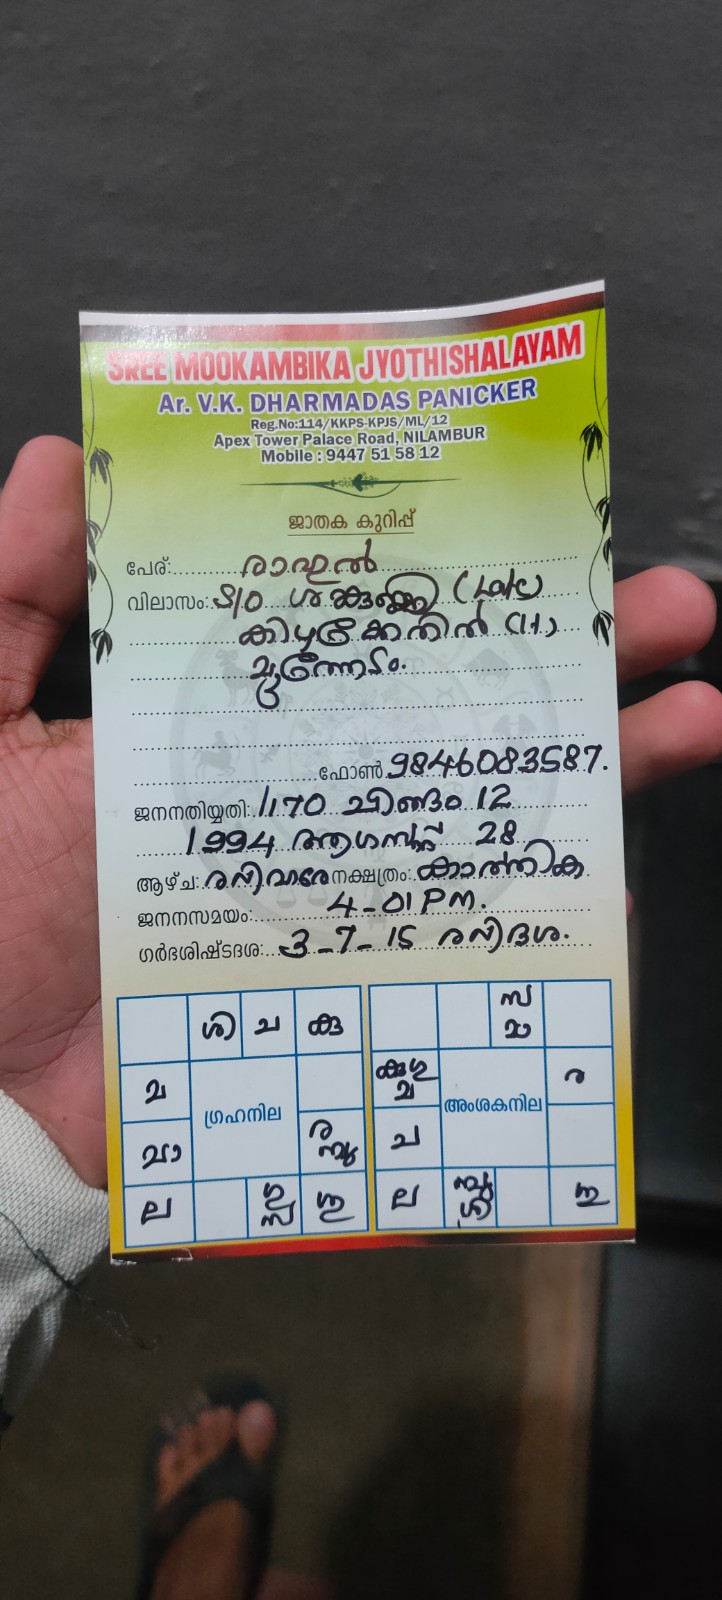 SREE MOOKAMBIKA JYOTHISHALAYAM
Ar. V.K. DHARMADAS PANICKER
Reg.No:114/KKPS-KPJS/ML/12
Apex Tower Palace Road, NILAMBUR
Mobile : 9447 51 58 12
ജാതക കുറിപ്പ്
പേര്: രാഹുൽ
വിലാസം: S/O ശങ്കുണ്ണി (Late)
കിഴക്കേതിൽ (H)
ഫോൺ 9846083587.
ജനനതിയ്യതി: 1170 ചിങ്ങം 12
1994 ആഗസ്റ്റ് 28
ആഴ്ച: രവിവാരേ നക്ഷത്രം: കാർത്തിക
ജനനസമയം: 4-01 PM.
ഗർഭശിഷ്ടദശ: 3-7-15 രവിദശ.
ശി ച കു സ മാ
മ
ഗ്രഹനില അംശകനില ര
ച
ല ല